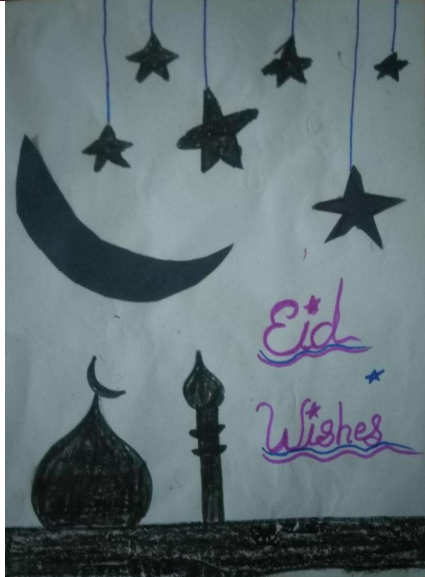 Eid
Wishes